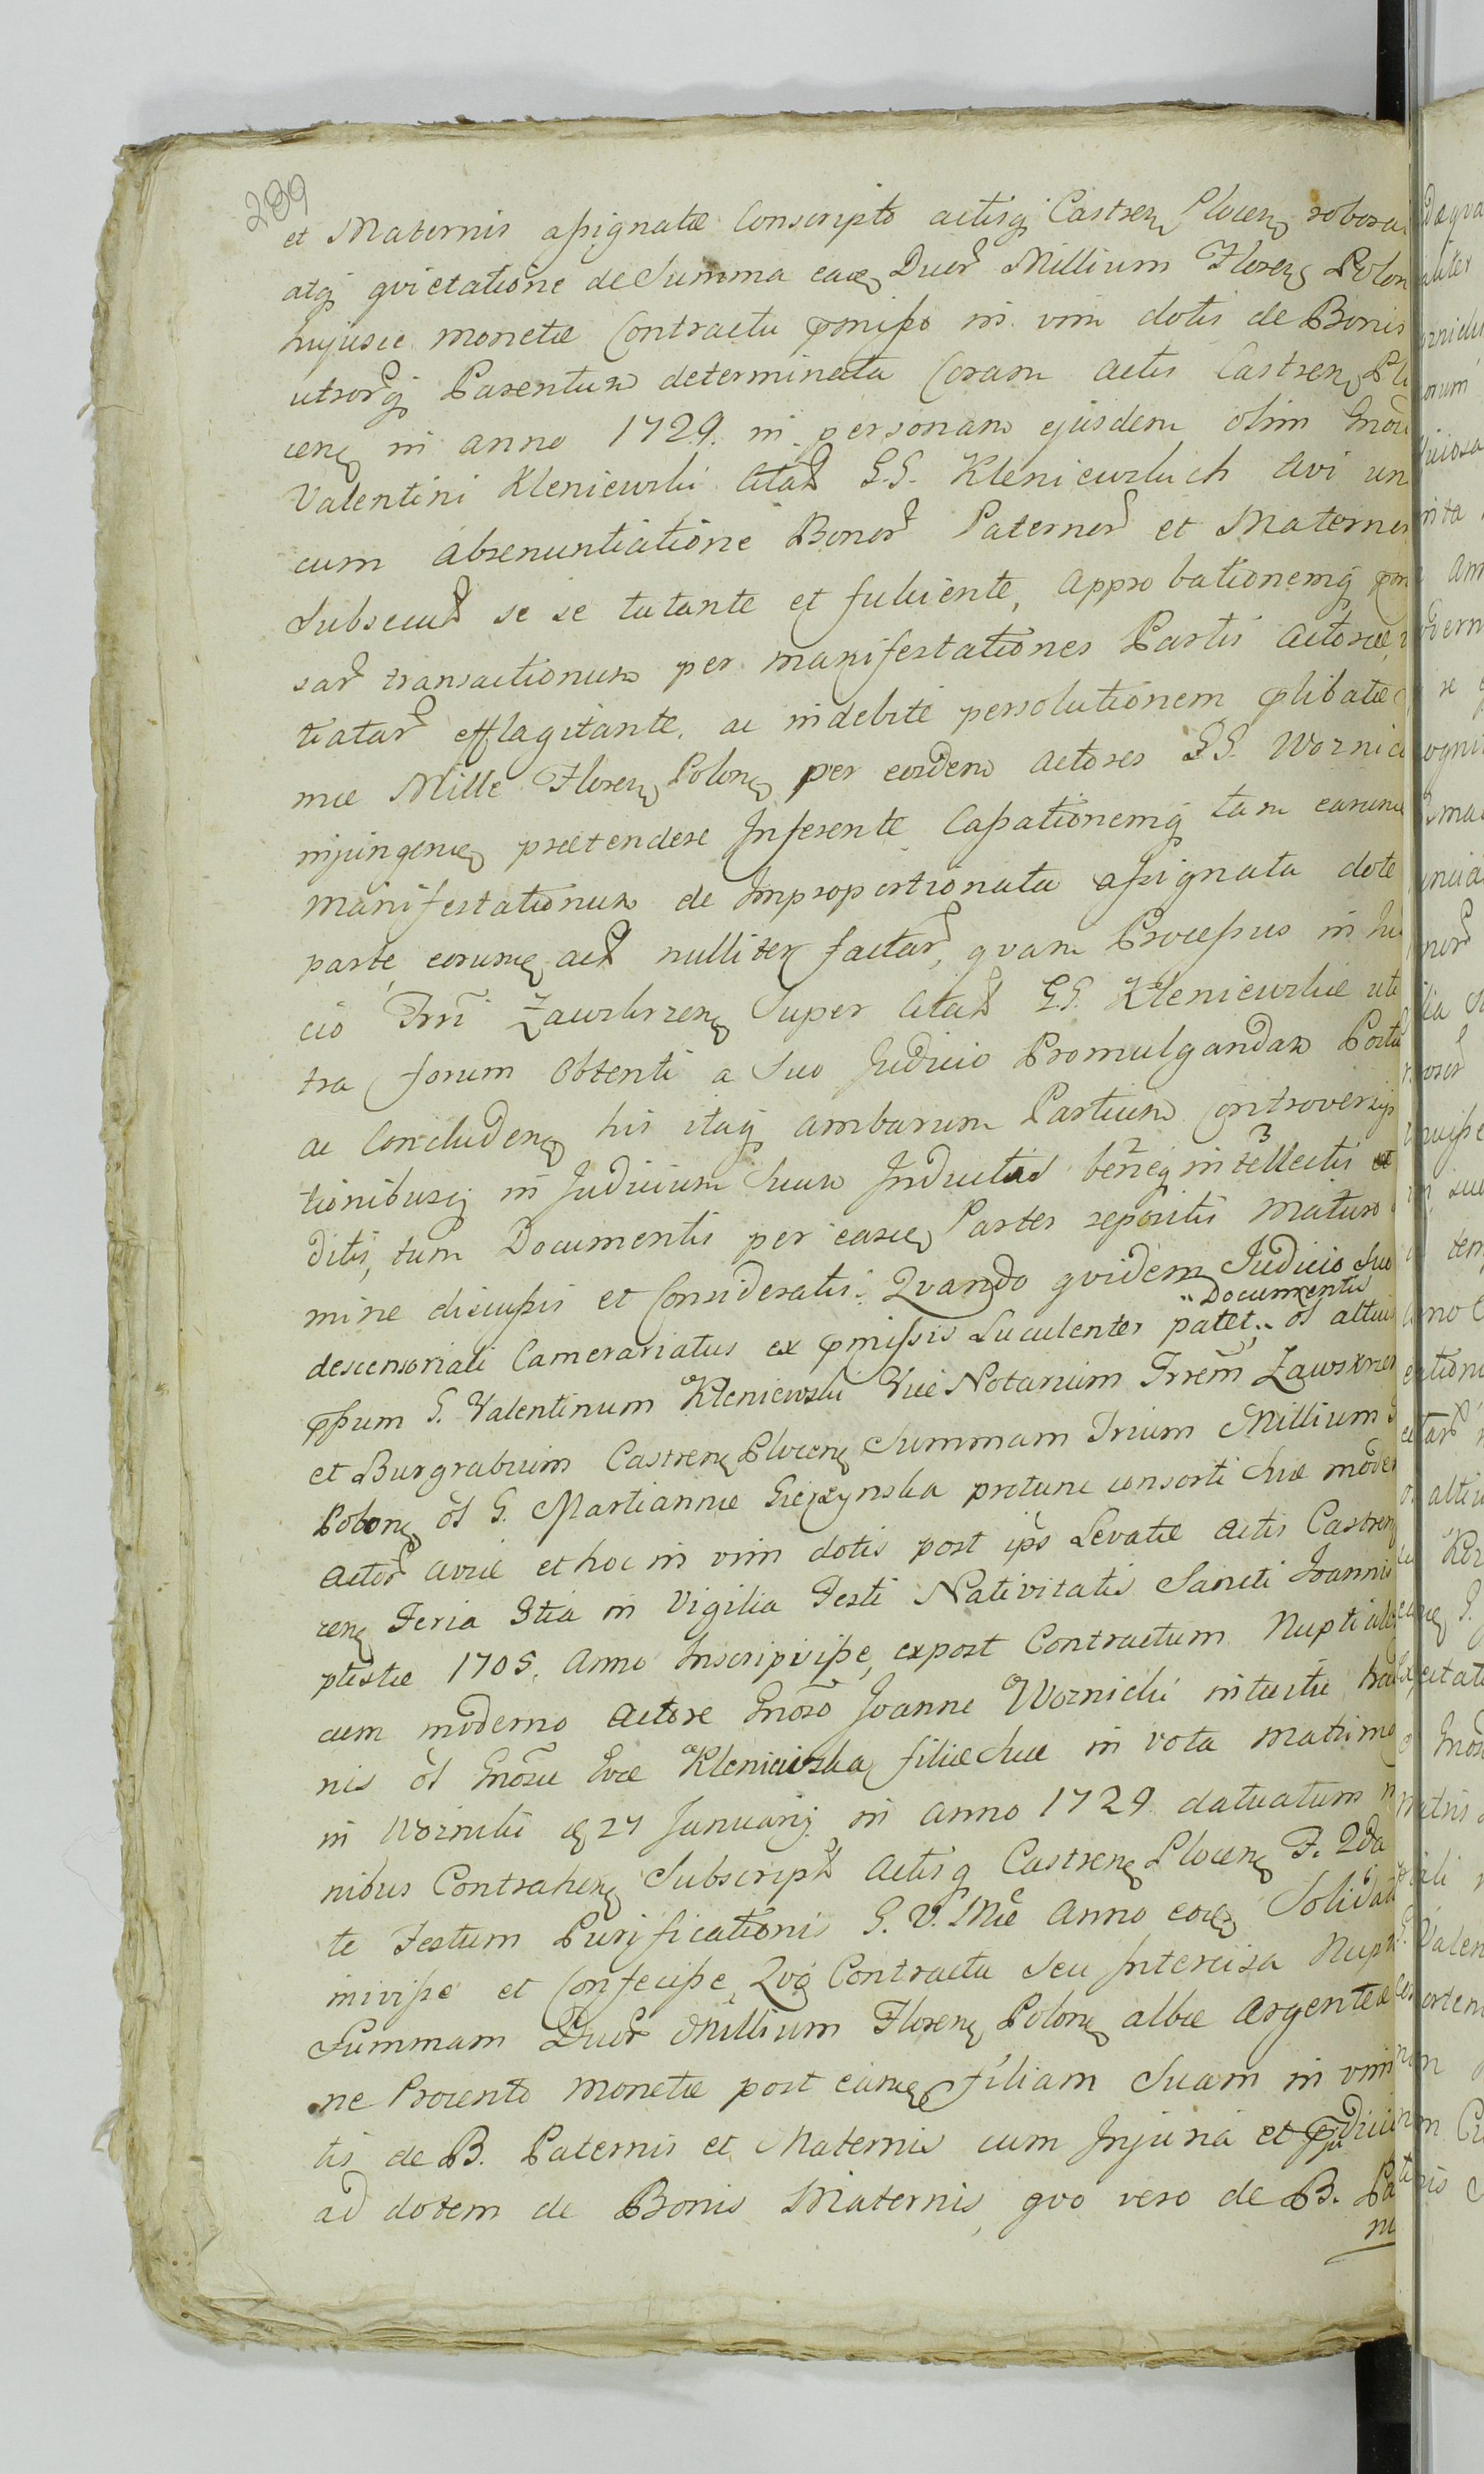 289
et Maternis assignatæ Conscripto actisq Castren Plocen robora
atq qvietatione de Summa eade Duor Millium Floren Polon
hujusce monetæ Contractu pmisso in vim dotis de Bonis
utrorq Parentum determinata Coram actis Castren Plo
cen in anno 1729. in personam ejusdem olim Gnosi
Valentini Kleniewski Citat G.G. Kleniewskich Avi un
cum abrenuntiatione Bonor Paternor et Maternor
Subsecut se se tutante et fulciente, Approbationemq pm
sar transactionum per manifestationes Partis Actoreæ,
tiatar efflagitante, ac indebite persolutionem plibatæ
mæ Mille Floren Polon per eosdem Actores G.G. Woznic
injungende prætendere Inferente Cassationemq tam earunde
manifestationum de Improportionata assignata dote
parte eorunde act nulliter factar, qvam Processus in Iu
cio Trri Zawskrzen Super Citat G.G. Kleniewskie ut
tra forum Obtenti a Suo Judicio Promulgandam Postu
ac Concluden his itaq ambarum Partium Controversys
tionibusq in Judicium Suum Inductis beneq intellectis et
ditis, tum Documentis per easde Partes repositis Maturo
mine discussis et Consideratis. Qvando qvidem Judicio Suo
descensoriali Camerariatus ex pmissis Luculenter patet, Documentis ol altius
pssum G. Valentinum Kleniewski Vice Notarium Trrem Zawskrzen
et Burgrabium Castren Plocen Summam Trium Millium
Polon ol G. Martiannæ Gieszynska protunc consorti Suæ moder
Actor aviæ et hoc in vim dotis post ips Levatæ Actis Castren
cen Feria 3tia in Vigilia Festi Nativitatis Sancti Joannis
ptistæ 1705. Anno Inscripsisse, expost Contractum Nuptiale
cum moderno Actore Gnoso Joanne Woznicki intuitu trad
nis ol Gnosæ Evæ Kleniewska filiæ Suæ in vota Matrimo
in Woznicki d 27 Januarij in Anno 1729. datuatum
nibus Contrahen Subscript Actisq Castren Plocen F. 2da
te Festum Purificationis G. V. Mæ Anno eode Solidat
inivisse et Confecisse, Qvo Contractu Seu Intercisa Nupt
Summam Duor Millium Floren Polon albæ Argenteæ
ne Procento Monetæ post eande filiam Suam in vim
tis de B. Paternis et Maternis cum Injuria et pjudici
ad dotem de Bonis Maternis, qvo vero de B. Pa
ni